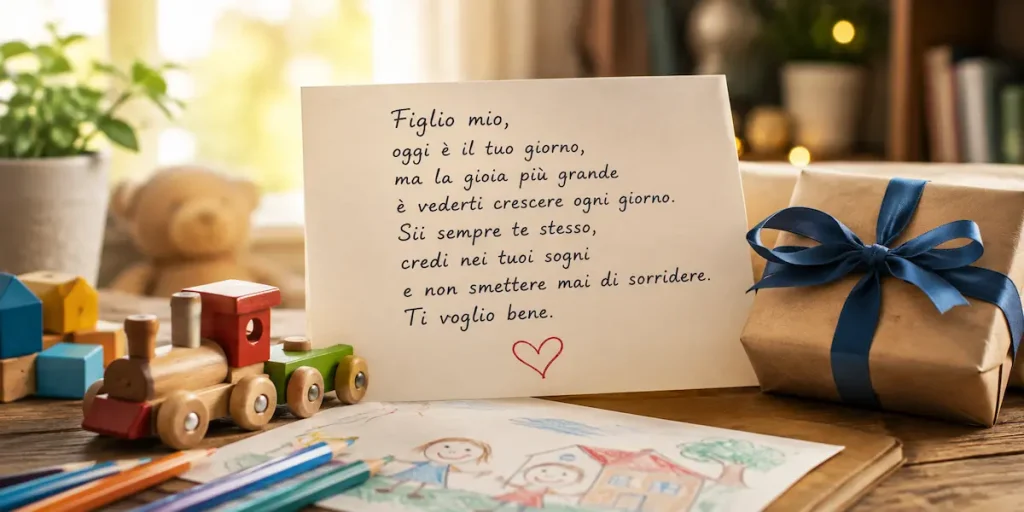 Figlio mio,
oggi è il tuo giorno,
ma la gioia più grande
è vederti crescere ogni giorno.
Sii sempre te stesso,
credi nei tuoi sogni
e non smettere mai di sorridere.
Ti voglio bene.